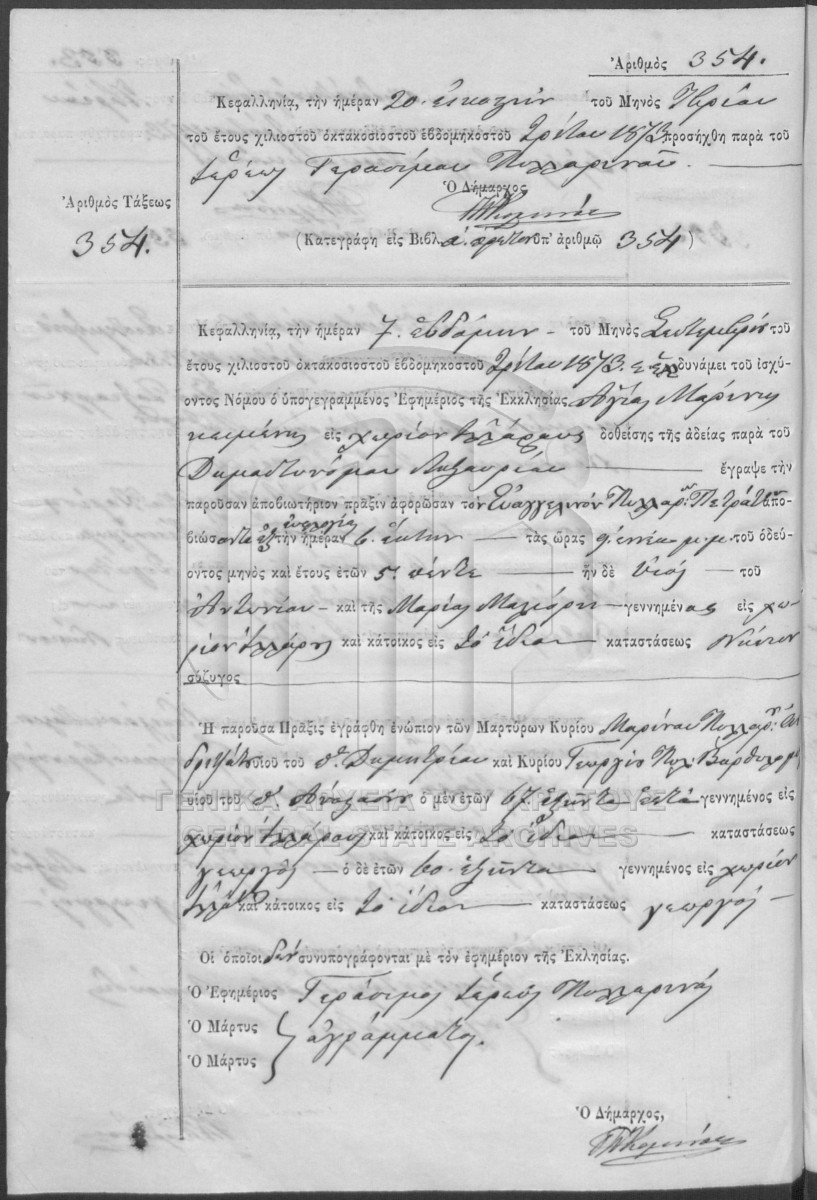 Ἀριθμὸς 354.
Κεφαλληνίᾳ, τὴν ἡμέραν 20. εἰκοστὴν τοῦ Μηνὸς
τοῦ ἔτους χιλιοστοῦ ὀκτακοσιοστοῦ ἑβδομηκοστοῦ Τρίτου 1873 προσήχθη παρὰ τοῦ
Ἱερέως Γερασίμου
Ὁ Δήμαρχος
Ἀριθμὸς Τάξεως
354.
(Κατεγράφη εἰς Βιβλ. ὑπ' ἀριθμῷ 354)
Κεφαλληνίᾳ, τὴν ἡμέραν 7. ἑβδόμην – τοῦ Μηνὸς Σεπτεμβρίου τοῦ
ἔτους χιλιοστοῦ ὀκτακοσιοστοῦ ἑβδομηκοστοῦ Τρίτου 1873. δυνάμει τοῦ ἰσχύ-
οντος Νόμου ὁ ὑπογεγραμμένος Ἐφημέριος τῆς Ἐκκλησίας Ἁγίας Μαρίνης
κειμένης εἰς χωρίον δοθείσης τῆς ἀδείας παρὰ τοῦ
Ληξουρίου ἔγραψε τὴν
παροῦσαν ἀποβιωτήριον πρᾶξιν ἀφορῶσαν τὸν Εὐαγγελινὸν ἀπο-
βιώσαντα τὴν ἡμέραν 6. ἕκτην — τὰς ὥρας 9. ἐννέα μ.μ. τοῦ ὁδεύ-
οντος μηνὸς καὶ ἔτους ἐτῶν 5. πέντε — ἦν δὲ υἱὸς — τοῦ
Ἀντωνίου – καὶ τῆς Μαρίας γεννημένος εἰς χω-
ρίον καὶ κάτοικος εἰς τὸ ἴδιον καταστάσεως
σύζυγος
Ἡ παροῦσα Πρᾶξις ἐγράφθη ἐνώπιον τῶν Μαρτύρων Κυρίου Μαρίνου
υἱοῦ τοῦ Δημητρίου καὶ Κυρίου Γεωργίου
υἱοῦ τοῦ ὁ μὲν ἐτῶν 67. ἑξήντα ἑπτὰ γεννημένος εἰς
χωρίον καὶ κάτοικος εἰς τὸ ἴδιον καταστάσεως
γεωργὸς — ὁ δὲ ἐτῶν 60. ἑξῆντα γεννημένος εἰς χωρίον
καὶ κάτοικος εἰς τὸ ἴδιον — καταστάσεως γεωργὸς –
Οἱ ὁποῖοι δὲν συνυπογράφονται μὲ τὸν ἐφημέριον τῆς Ἐκλησίας.
Ὁ Ἐφημέριος Γεράσιμος Ἱερεὺς
Ὁ Μάρτυς
ἀγράμματοι.
Ὁ Μάρτυς
Ὁ Δήμαρχος,
ΓΕΝΙΚΑ ΑΡΧΕΙΑ ΤΟΥ ΚΡΑΤΟΥΣ
GENERAL STATE ARCHIVES